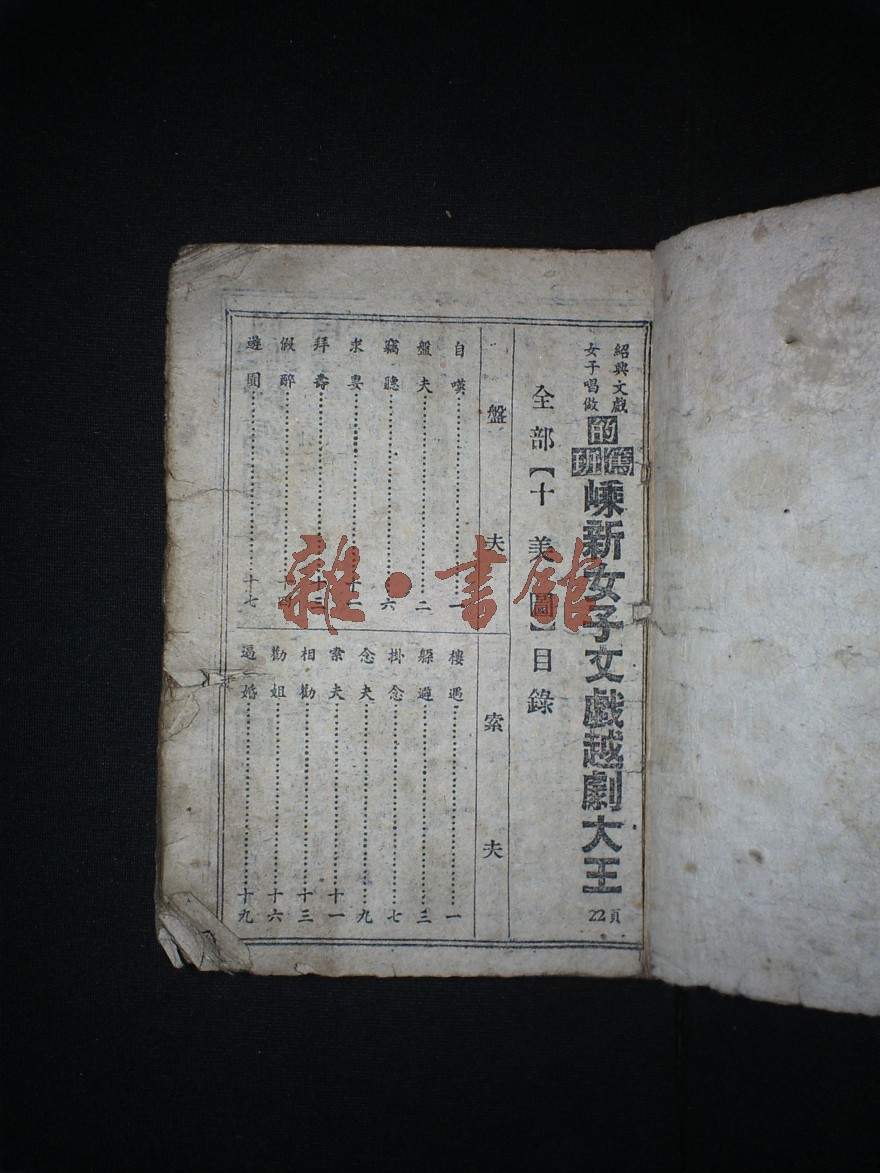 紹興文戲
女子唱做
的篤班
嵊新女子文戲越劇大王
22頁
全部【十美圖】目錄
盤夫
自嘆……一
盤夫……二
竊聽……六
求……十一
拜壽……十二
假醉……十四
遊園……十七
索夫
樓遇……一
三
掛念……七
念夫……九
索夫……十一
相勸……十三
勸姐……十六
逼婚……十九
雜·書館